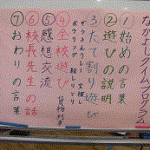 なかよしタイムプログラム
①始めの言葉
②遊びの説明
③たて割り遊び
④全校遊び
⑤感想交流
⑥校長先生の話
⑦おわりの言葉